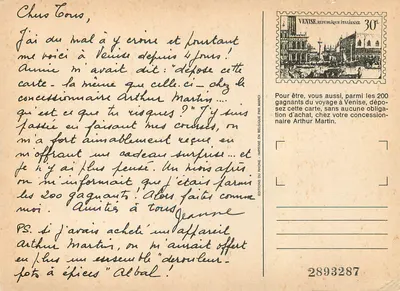 Chers Tous,
J'ai du mal à y croire et pourtant
me voici à Venise depuis 4 jours!
Annie m'avait dit: "dépose cette
carte - la même que celle-ci - chez le
concessionnaire Arthur Martin....
qu'est ce que tu risques?" J'y suis
passée en faisant mes courses, on
m'a fort aimablement reçue en
m'offrant un cadeau surprise... et
je n'y ai plus pensé. Un mois après
on m'informait que j'étais parmi
les 200 gagnants! Alors faites comme
moi. Amitiés à tous,
Jeanne
P.S. Si j'avais acheté un appareil
Arthur Martin, on m'aurait offert
en plus un ensemble "dérouleur-
pots à épices" Albal!
VENISE REPUBLIQUE ITALIENNE
30c
Pour être, vous aussi, parmi les 200
gagnants du voyage à Venise, dépo-
sez cette carte, sans aucune obliga-
tion d'achat, chez votre concession-
naire Arthur Martin.
2893287